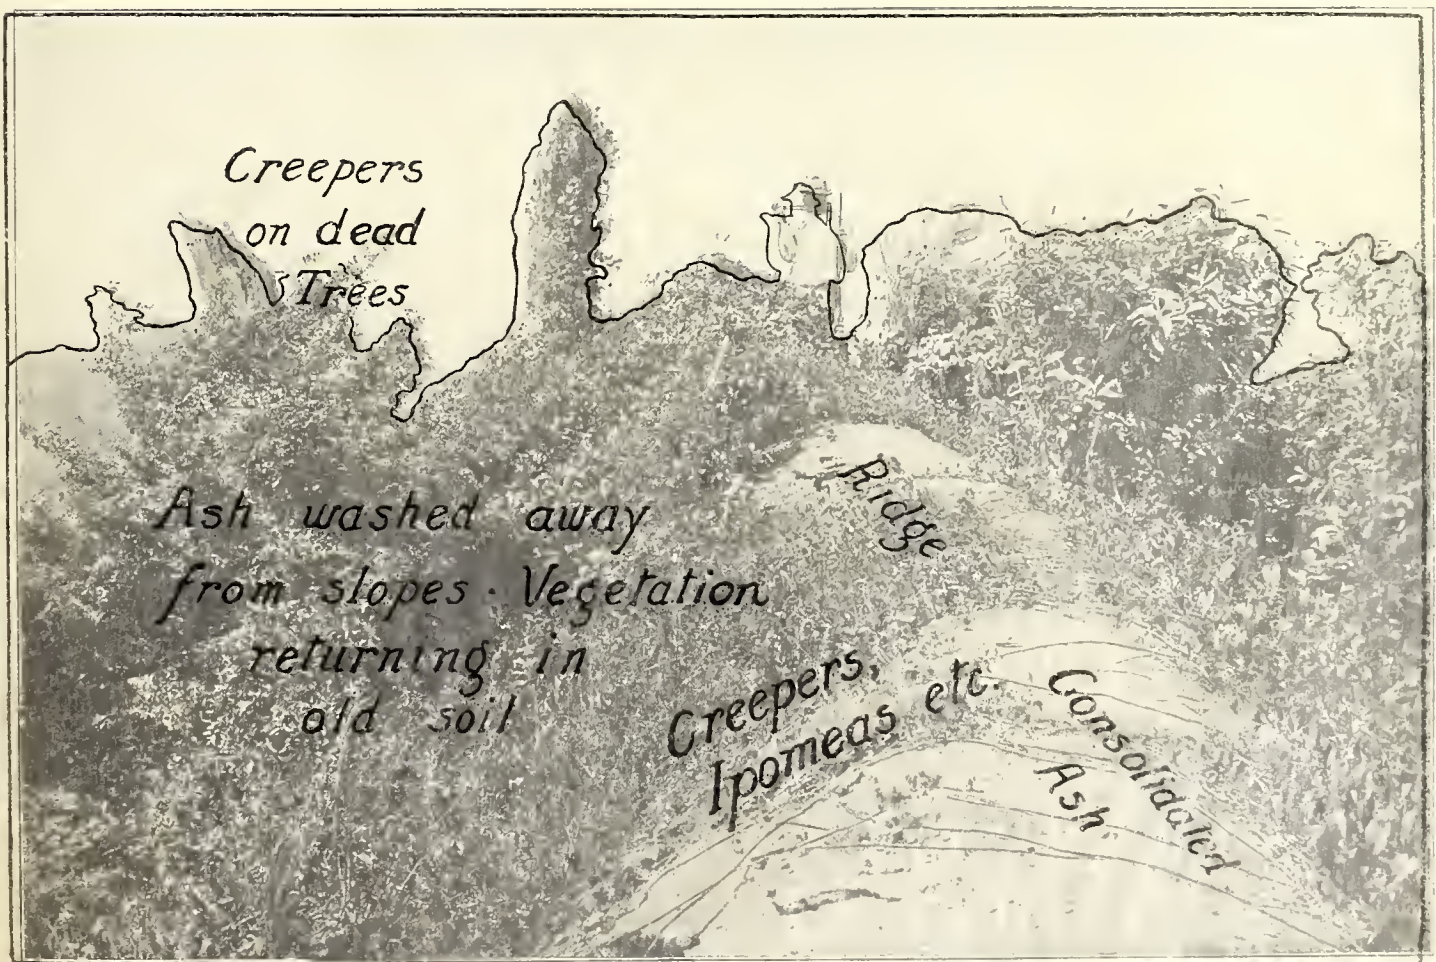 Creepers
on dead
Trees
Ridge
Ash washed away
from slopes · Vegetation
returning in
old soil
Creepers,
Ipomeas etc.
Consolidated
Ash